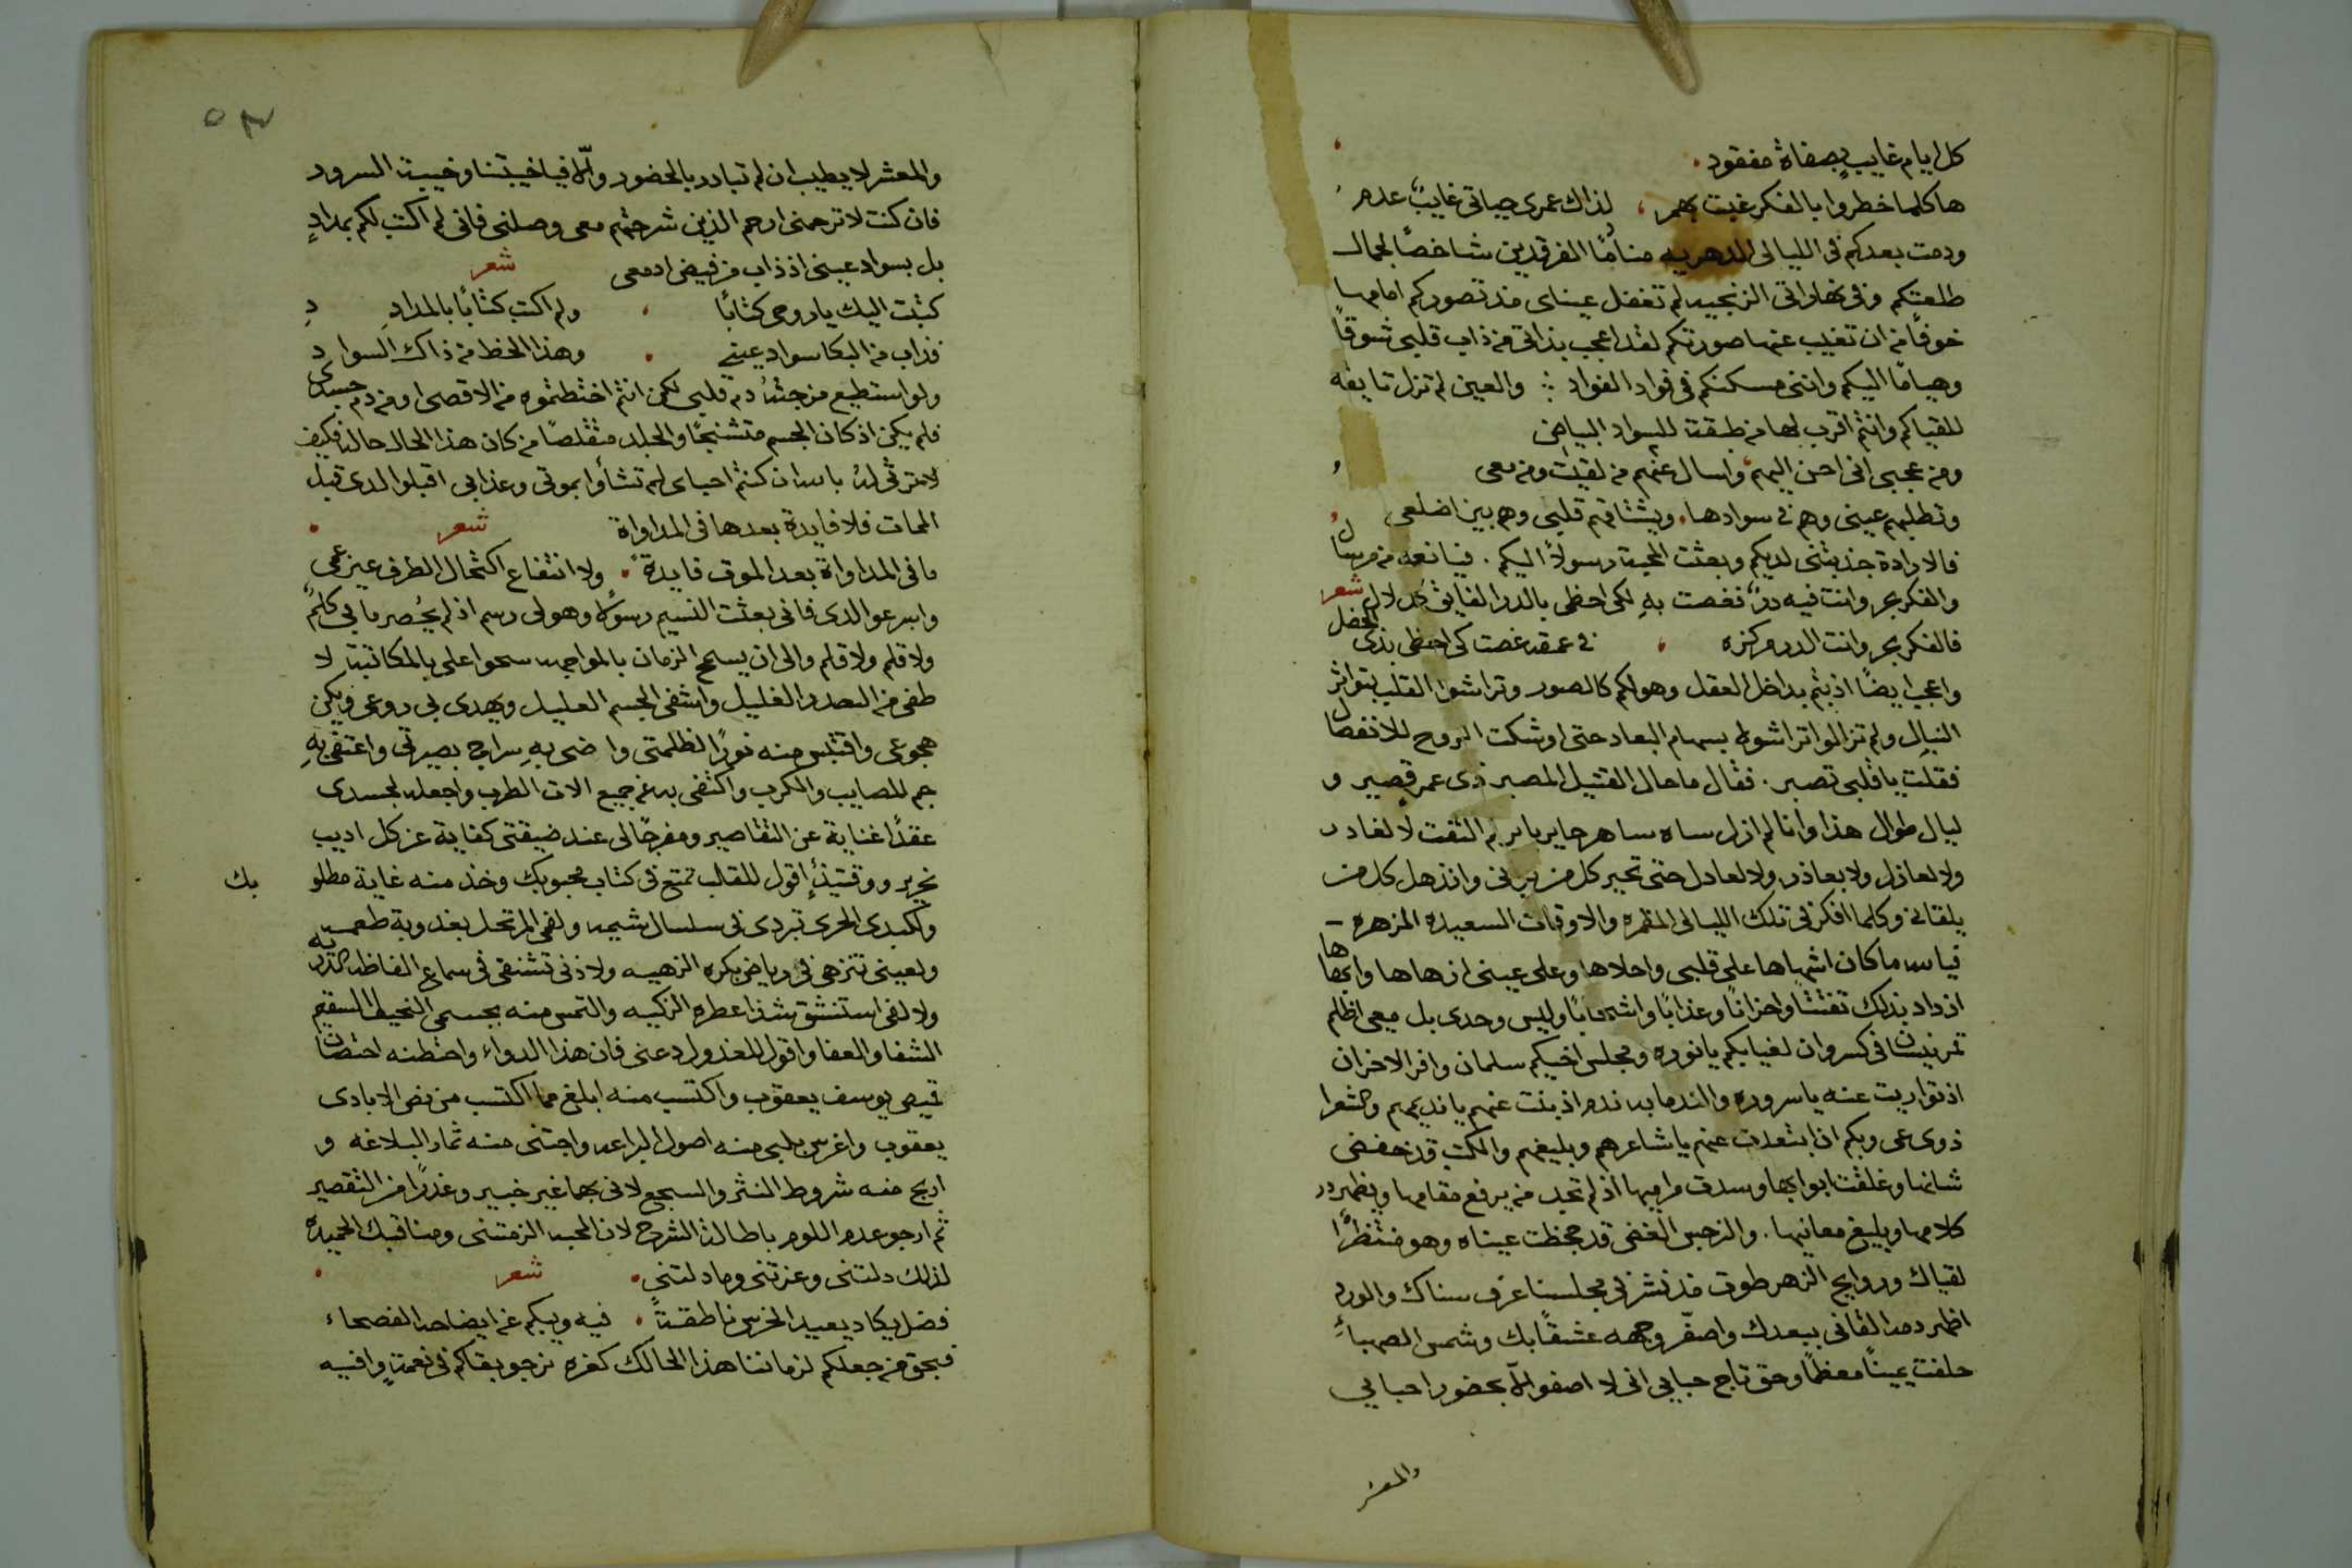 كل ايام غايب بصفاة مفقود
ها كلما خطروا بالفكر غبت بهم ، لذاك عمرى حياتى غايبٌ عدم
ودمت بعدكم فى الليالى الدهريه منامًا الفرقدين شاخصًا لجمال
طلعتكم وفى نهاراتى الزنجيه لم تغفل عيناى منذ تصوركم امامها
خوفًا من ان تغيب عنها صورتكم لقد اعجب بذاتى من ذاب قلبى شوقًا
وهيامًا اليكم وانتى مسكنكم فى فواد الفواد والعين لم تزل تايقه
للقياكم وانتم اقرب لها من طبقت للسواد البياض
ومن عجبى انى احن اليهم واسال عنهم من لقيت وهم معى
وتطلبهم عينى وهم فى سوادها ويشتاقهم قلبى وهم بين اضلعى
فالارادة جذبتنى لديكم وبعثت المحبة رسولاً اليكم . فيا نعم من مرسال
والفكر بحر وانت فيه درٌ تغصت بهِ لكى احظى بالدر الفايق كل لال شعر
فالفكر بحر وانت الدر مركزه ، فى عمقه غصت كى احظى بذى الخضل
واعجب ايضًا اذ بتم بداخل العقل وهو لكم كالصور وتراشوا القلب بتواتر
النبال ولم تزالوا تراشوه بسهام البعاد حتى اوشكت الروح للانفصال
فقلت يا قلبى تصبر . فقال ما حال القتيل المصبر ذى عمر قصير و
ليال طوال هذا وانا لم ازل ساه ساهر حاير باير لم التفت لا لغادر
ولا لعاذل ولا بعاذر ولا لعادل حتى تحير كل من يرانى وانذهل كل من
يلقانى وكلما افكر فى تلك الليالى المقمره والاوقات السعيده المزهره
فيالله ما كان اشهاها على قلبى واحلاها وعلى عينى ازهاها وابهاها
ازداد بذلك تفتتًا واحزانًا وعذابًا وليس وحدى بل معى اظلم
فى كسروان لغيابكم يا نوره ومجلس اخيكم سلمان وافر الاحزان
اذ تواريت عنه يا سروره والندما به ندم اذ بنت عنهم يا نديمهم والشعرا
ذوى عى وبكم اذ ابتعدت عنهم يا شاعرهم وبليغهم والكتب قد خفض
شانها وغلقت ابوابها وسدت مراميها اذ لم تجد من يرفع مقامها ويظهر در
كلامها وبليغ معانيها . والنرجس الغض قد جحظت عيناه وهو منتظرًا
لقياك وروايح الزهر طوت منذ نشر فى مجلسنا عرف سناك والورد
اظهر دمه القانى ببعدك واصفّر وجهه عشقًا بك وشمس الصهباءِ
حلفت يمينًا معظمًا وحق تاج حبابى انى لا اصفو الّا بحضور احبابى
والمعشر
والمعشر لا يطيب ان لم تبادر بالحضور والّا فيا خيبتنا وخيبة السرور
فان كنت لا ترحمنى ارحم الذين شرحتهم معى وصلنى فانى لم اكتب لكم بمدادٍ
بل بسواد عينى اذ ذاب من فيض ادمعى شعر
كتبت اليك يا روحى كتابًا ، ولم اكتب كتابًا بالمدادِ
فذاب من البكا سواد عينى ، وهذا الخط من ذاك السواد
ولو استطيع مزجته دم قلبى لكن انتم اختطفتموه من الاقصى او من دم جسدى
فلم يكن اذ كان الجسم متشنجًا والجلد متقلصًا من كان هذا الحال حاله فكيف
لا ترثى له يالله ان كنتم احباى لم تشأوا بموتى وعذابى اقبلوا لدى قبل
الممات فلا فايدة بعدها فى المداواة شعر
ما فى المداواة بعد الموت فايدةً ، ولا انتفاع اكتحال الطرف عين عمى
واسرعوا لدى فانى بعثت النسيم رسولاً وهو لى رسم اذ لم يُحصر ما بى كلمٌ
ولا قلم ولا قلم والى ان يسمح الزمان بالمواجهه سمحوا على بالمكاتبة لا
طفى من البعد الغليل واشفى الجسم العليل ويهدى بى روعى ويكن
هجوعى واقتبس منه نورًا لظلمتى واضى بهِ سراج بصيرتى واعتقى بهِ
جم المصايب والكرب واكتفى به عن جميع الات الطرب واجعله لجسدى
عقدًا غناية عن التقاصير ومفرجًا لى عند ضيقتى كفاية عن كل اديب
نحرير ووقتيذٍ اقول للقلب تمتع فى كتاب محبوبك وخذ منه غاية مطلوبك
ولكبدى الحرى تبردى فى سلسال شيمه ولفى المرتحل بعذوبة طعمه
ولعينى تنزهى فى رياض بكره الزهيه ولاذنى تشنفى فى سماع الفاظه
ولانفى استنشق شذا عطره الزكيه والتمس منه بجسمى النحيل السقيم
الشفا والعفا واقول للعذول دعنى فان هذا الدواء واحتضنه احتضان
قميص يوسف يعقوب واكتسب منه ابلغ مما اكتسب من نض الايادى
يعقوب واغرس بلبى منه اصول البراعه واجتنى منه ثمار البلاغه و
اربح منه شروط النثر والسجع لانى بهما غير خبير وعذرًا من التقصير
ثم ارجو عدم اللوم باطالة الشرح لان المحبه الزمتنى ومناقبك الحميده
لذلك دلتنى وعزتنى وما دلتنى شعر
فضل يكاد يعيد الخرس ناطقتةً ، فيه ويبكم عن ايضاحه الفصحاء
فبحق من جعلكم لزماننا هذا الحالك كغره نرجو بقاكم فى نعمةٍ وافيه